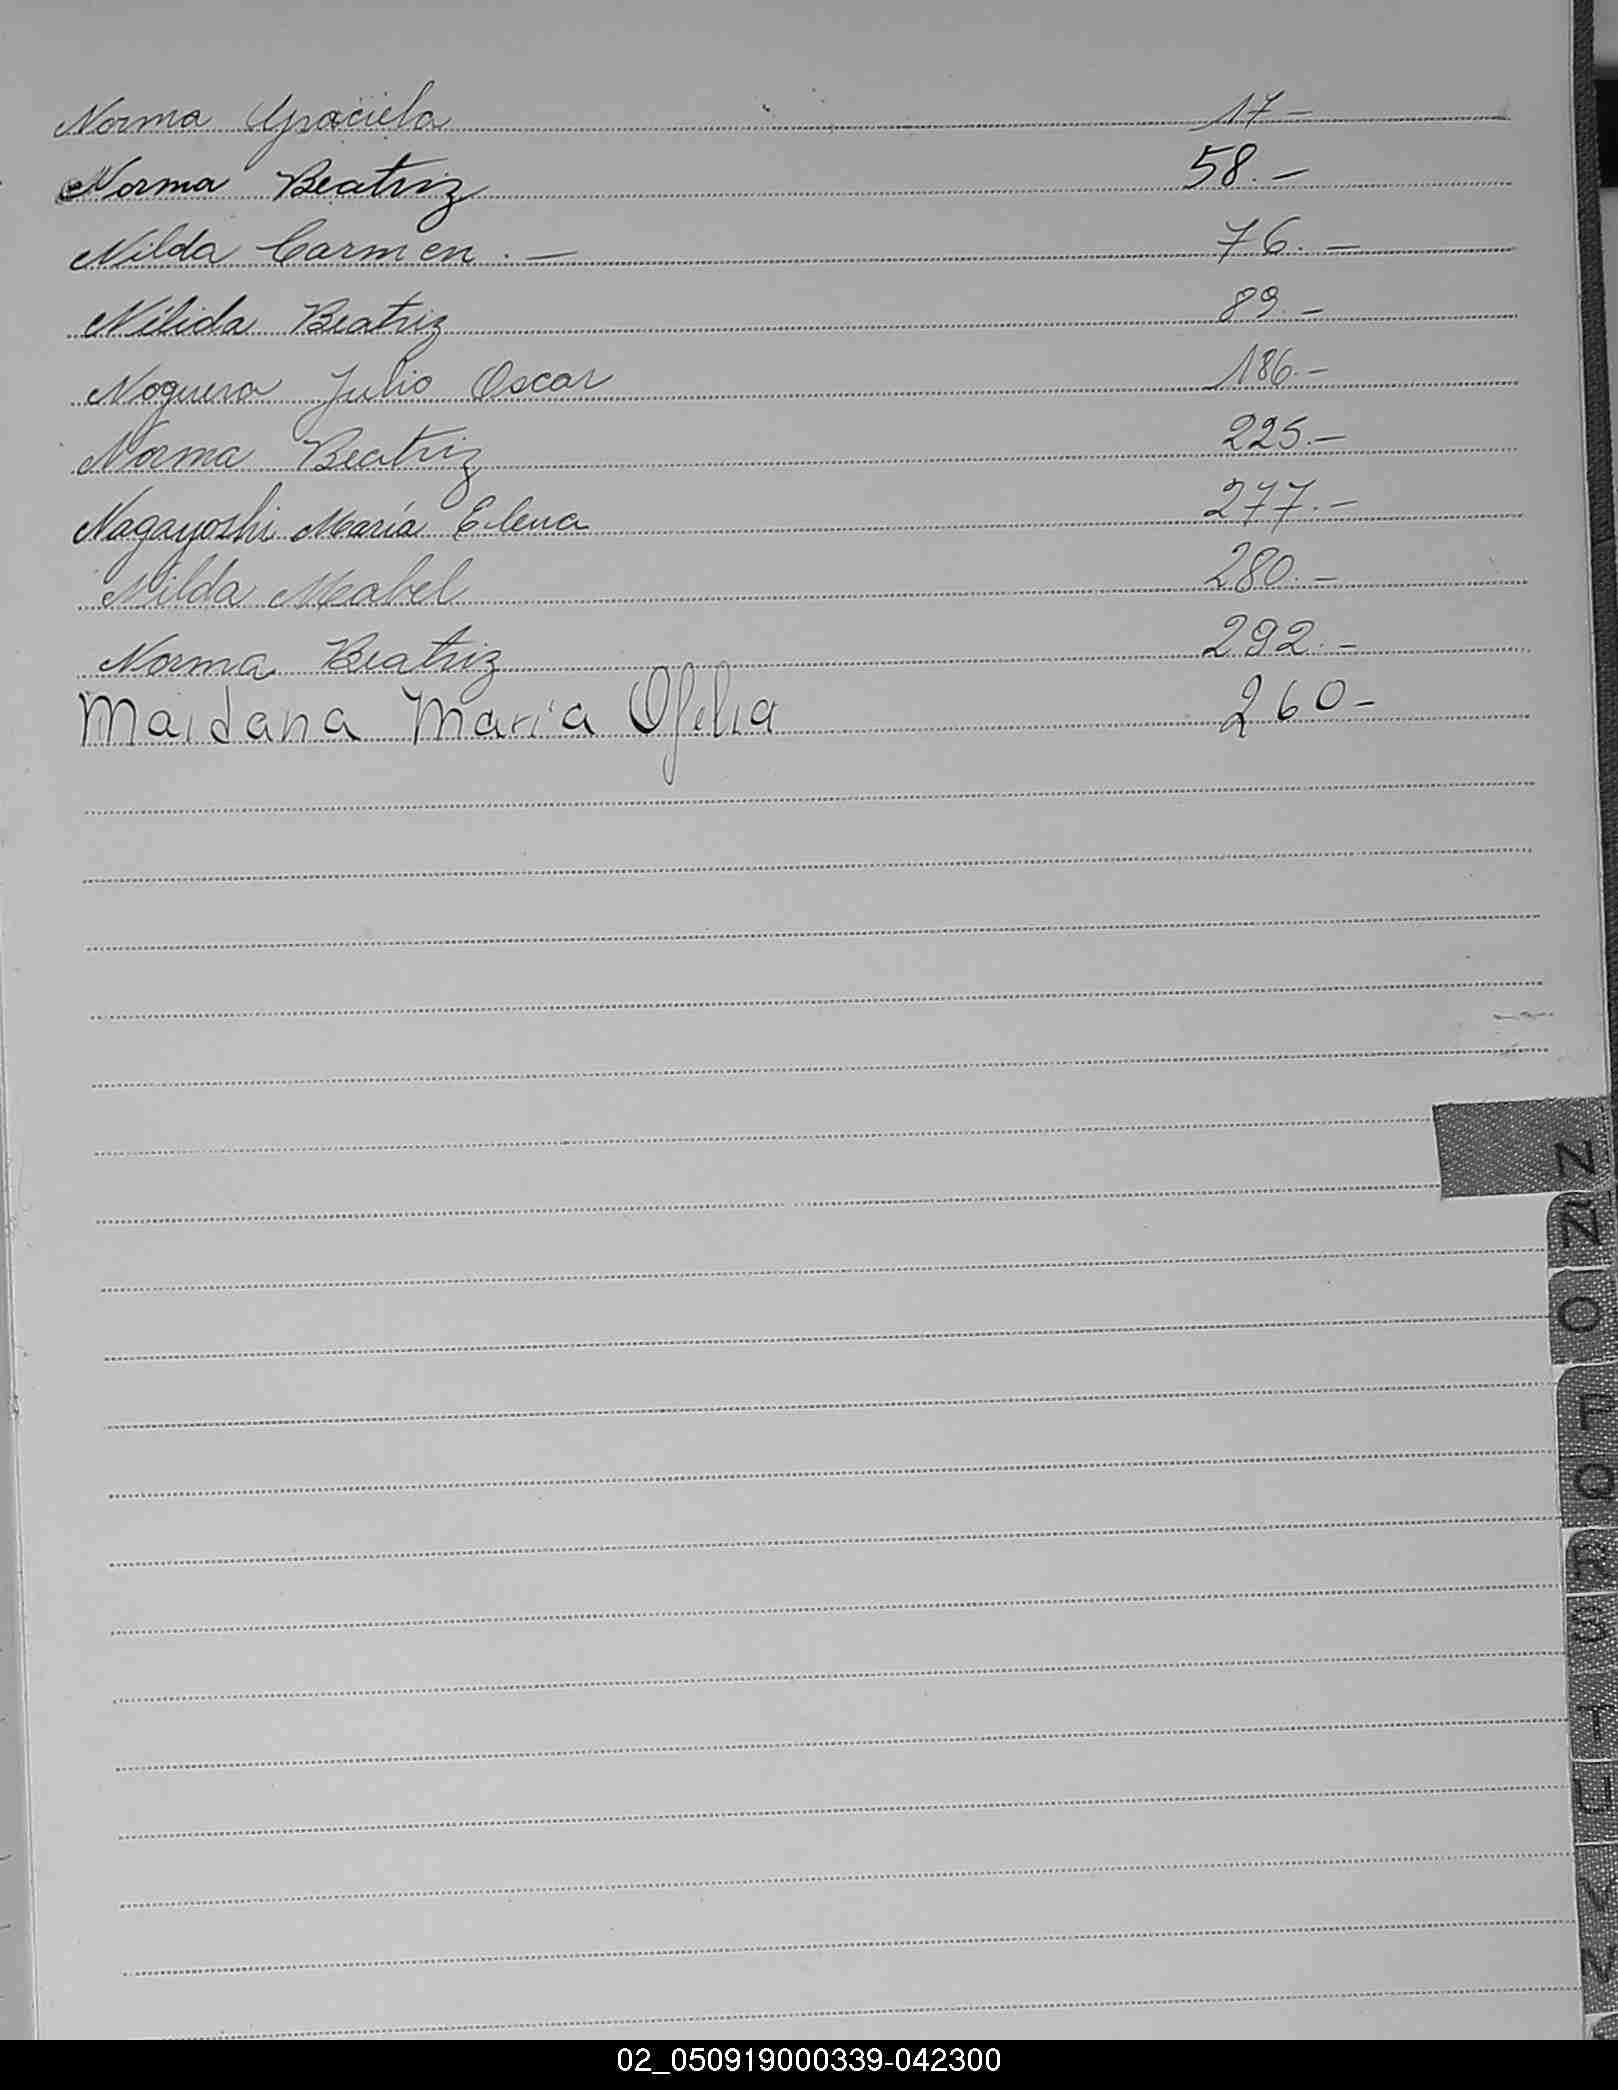 Norma Graciela 17 -
Norma Beatriz 58. -
Nilda Carmen . - 76. -
Nélida Beatriz 89. -
Noguera Julio Oscar 186. -
Norma Beatriz 225. -
Nagayoshi María Elena 277. -
Nilda Mabel 280. -
Norma Beatriz 292. -
Maidana Maria Ofelia 260 -
N
Ñ
O
P
Q
R
S
T
U
V
02_050919000339-042300